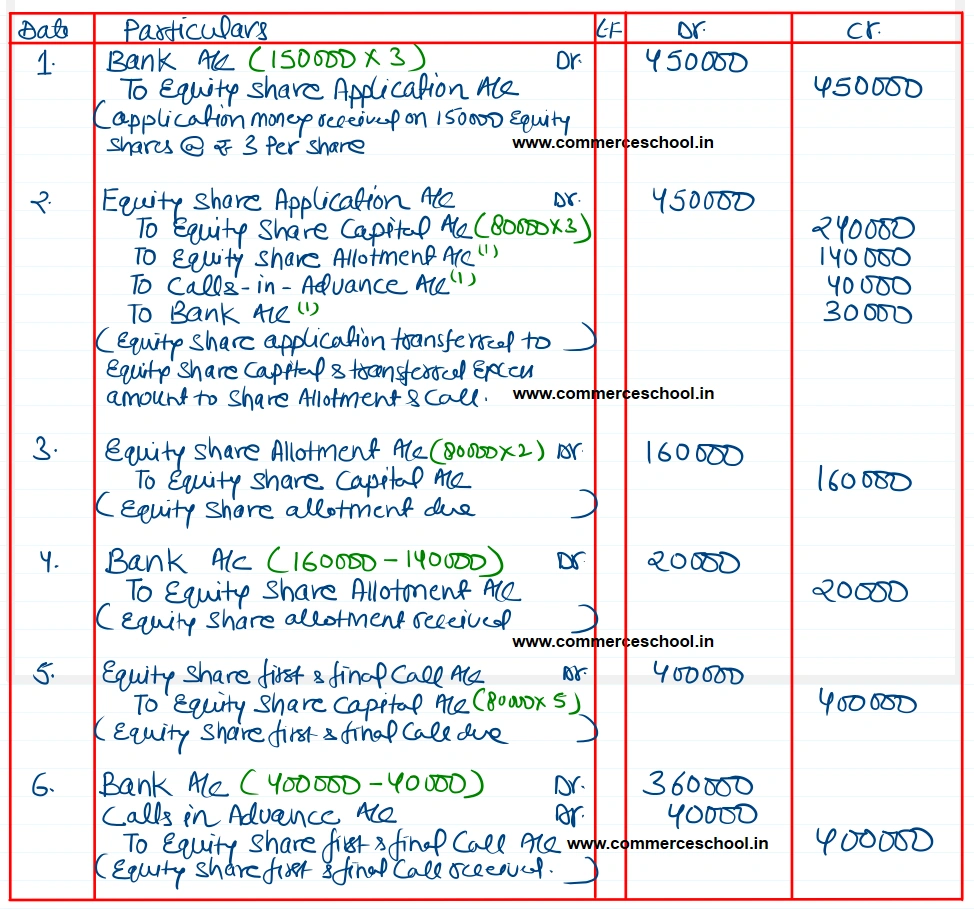 Date Particulars LF Dr. Cr.
1. Bank A/c (150000 x 3) Dr. 450000
To Equity Share Application A/c 450000
(application money received on 150000 Equity
shares @ ₹ 3 Per share www.commerceschool.in
2. Equity Share Application A/c Dr. 450000
To Equity Share Capital A/c (80000x3) 240000
To Equity Share Allotment A/c (1) 140000
To Calls-in-Advance A/c (1) 40000
To Bank A/c (1) 30000
(Equity share application transferred to )
Equity share Capital & transferred Excess
amount to share Allotment & Call. www.commerceschool.in
3. Equity Share Allotment A/c (80000x2) Dr. 160000
To Equity Share Capital A/c 160000
(Equity share allotment due )
4. Bank A/c (160000 - 140000) Dr. 20000
To Equity Share Allotment A/c 20000
(Equity share allotment received )
www.commerceschool.in
5. Equity Share first & final Call A/c Dr. 400000
To Equity Share Capital A/c (80000x5) 400000
(Equity Share first & final Call due )
6. Bank A/c (400000 - 40000) Dr. 360000
Calls in Advance A/c Dr. 40000
To Equity Share first & final Call A/c www.commerceschool.in 400000
(Equity Share first & final Call received. )